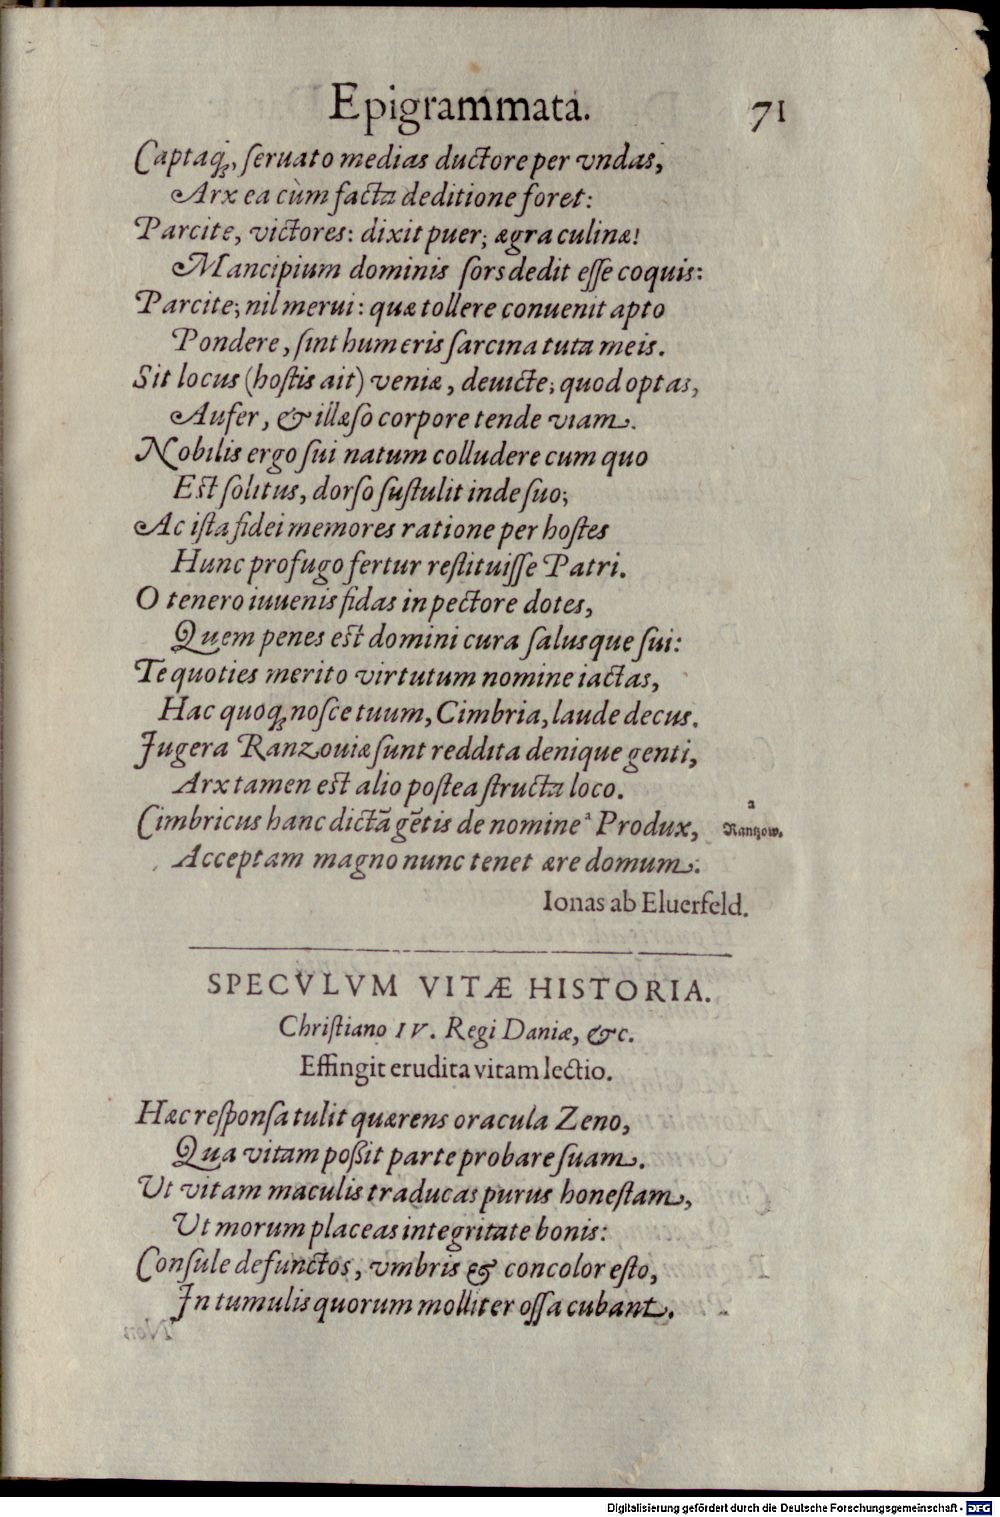 Epigrammata. 71
Captaq́ꝫ, ſeruato medias ductore per vndas,
Arx ea cùm facta deditione foret:
Parcite, victores: dixit puer; ægra culinæ!
Mancipium dominis ſors dedit eſſe coquis:
Parcite; nil merui: quæ tollere conuenit apto
Pondere, ſint humeris ſarcina tuta meis.
Sit locus (hoſtis ait) veniæ, deuicte; quod optas,
Aufer, & illæſo corpore tende viam.
Nobilis ergo ſui natum colludere cum quo
Eſt ſolitus, dorſo ſuſtulit inde ſuo;
Ac iſta fidei memores ratione per hoſtes
Hunc profugo fertur reſtituiſſe Patri.
O tenero iuuenis fidas in pectore dotes,
Quem penes eſt domini cura ſalusque ſui:
Te quoties merito virtutum nomine iactas,
Hac quoqꝫ noſce tuum, Cimbria, laude decus.
Jugera Ranzouiæ ſunt reddita denique genti,
Arx tamen eſt alio poſtea ſtructa loco.
Cimbricus hanc dictā gētis de nomine ᵃ Produx,
a
Rantzow.
Acceptam magno nunc tenet ære domum.
Ionas ab Eluerfeld.
SPECVLVM VITÆ HISTORIA.
Chriſtiano IV. Regi Daniæ, &c.
Effingit erudita vitam lectio.
Hæc reſponſa tulit quærens oracula Zeno,
Qua vitam poßit parte probare ſuam.
Ut vitam maculis traducas purus honeſtam,
Ut morum placeas integritate bonis:
Conſule defunctos, vmbris & concolor eſto,
Jn tumulis quorum molliter oſſa cubant.
Digitalisierung gefördert durch die Deutsche Forschungsgemeinschaft - DFG